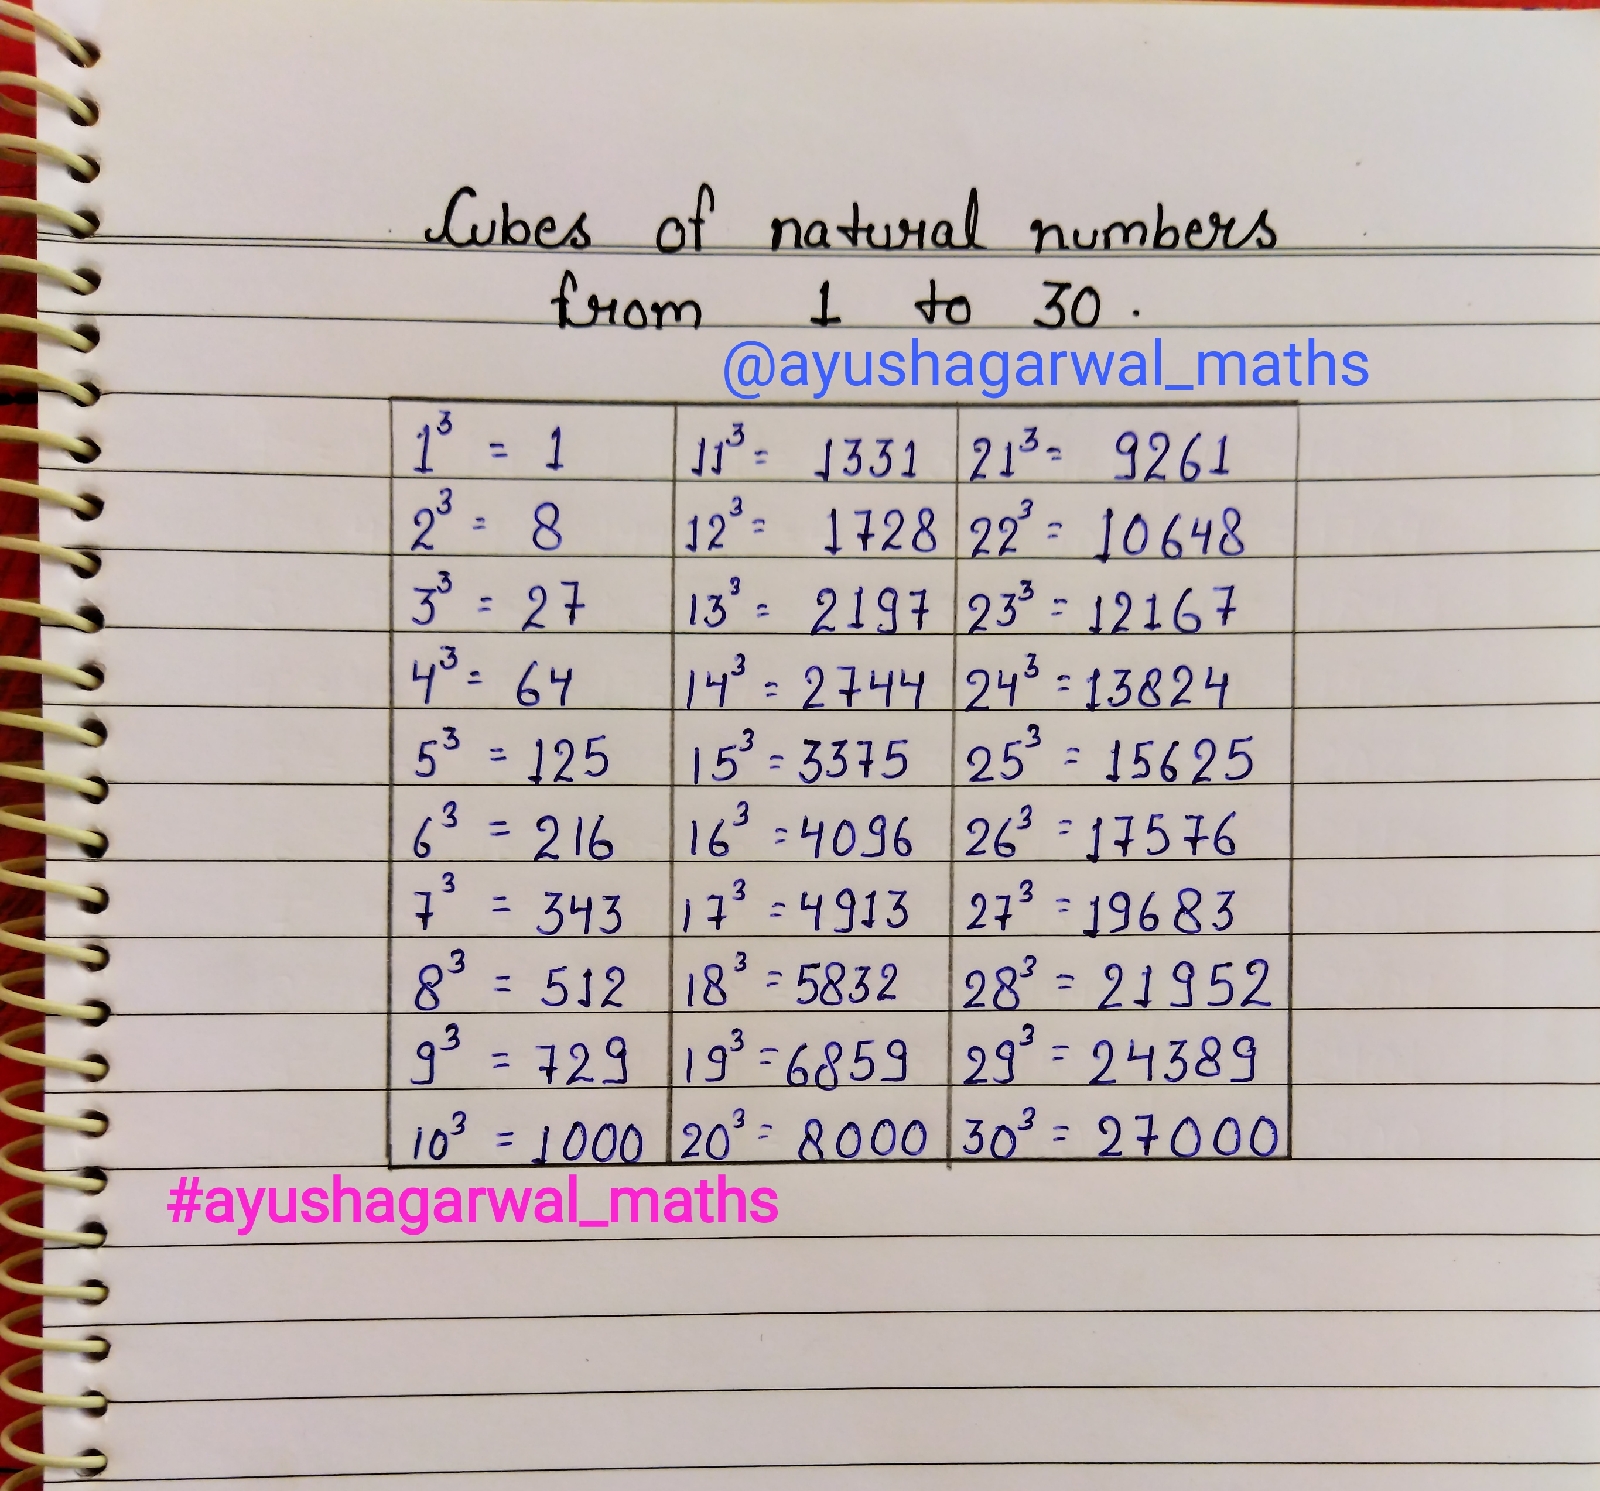 Cubes of natural numbers
from 1 to 30.
@ayushagarwal_maths
1³ = 1 11³ = 1331 21³ = 9261
2³ = 8 12³ = 1728 22³ = 10648
3³ = 27 13³ = 2197 23³ = 12167
4³ = 64 14³ = 2744 24³ = 13824
5³ = 125 15³ = 3375 25³ = 15625
6³ = 216 16³ = 4096 26³ = 17576
7³ = 343 17³ = 4913 27³ = 19683
8³ = 512 18³ = 5832 28³ = 21952
9³ = 729 19³ = 6859 29³ = 24389
10³ = 1000 20³ = 8000 30³ = 27000
#ayushagarwal_maths